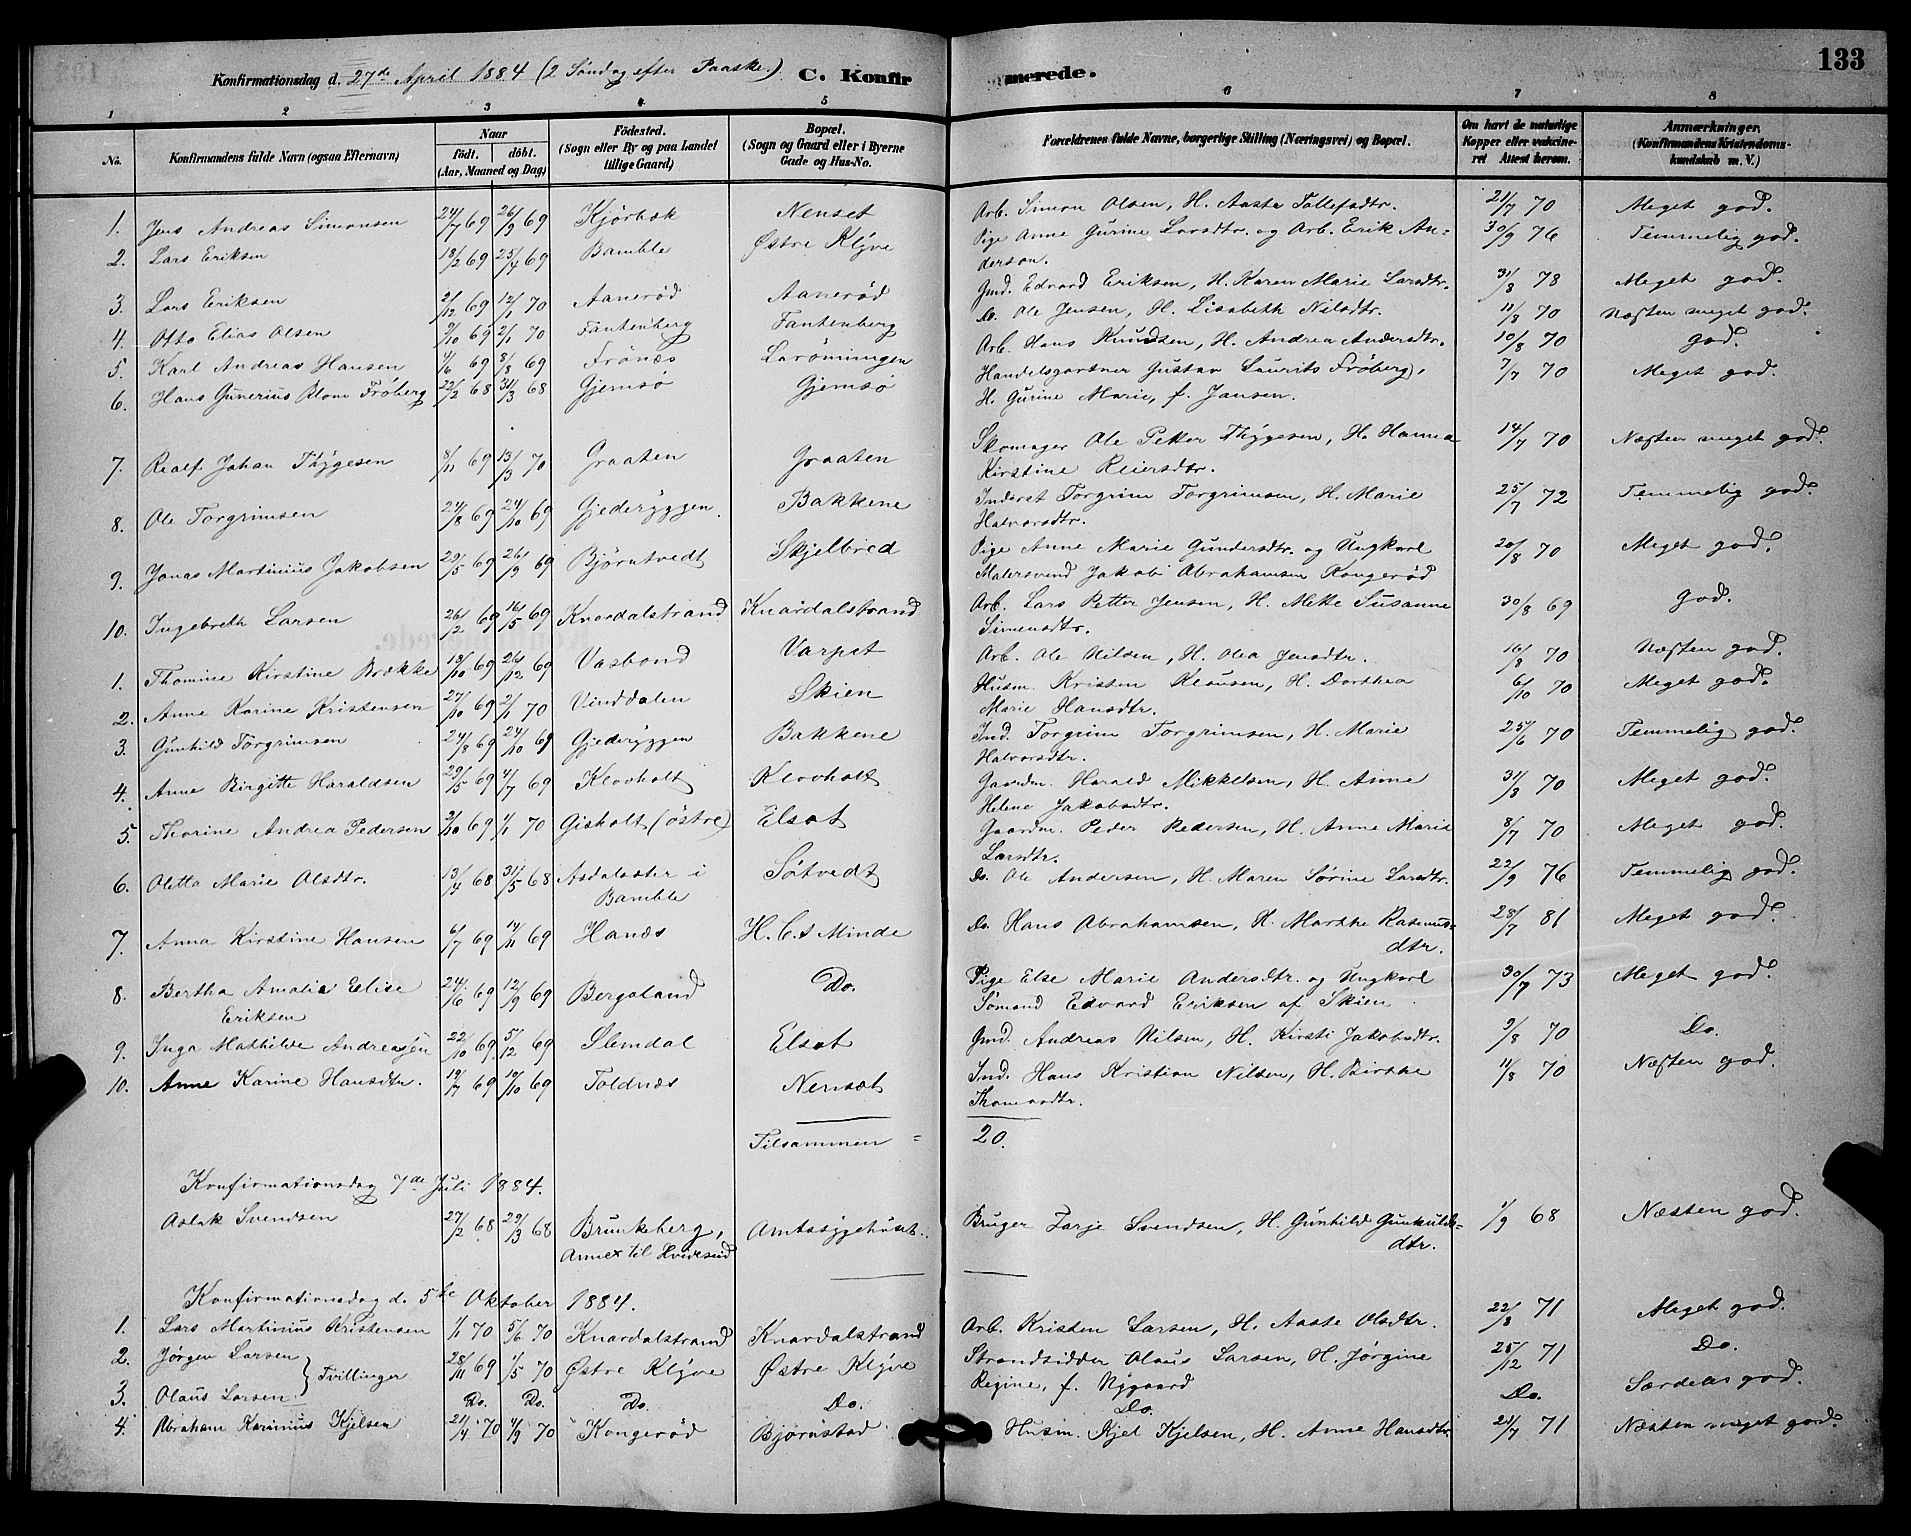 133
Konfirmationsdag d. 27de April 1884 (2 Søndag efter Paaske.) C. Konfirmerede.
1 2 3 4 5 6 7 8
No. Konfirmandens fulde Navn (ogsaa Efternavn) Naar født. døbt. (Aar, Maaned og Dag) Fødested. (Sogn eller By og paa Landet tillige Gaard) Bopæl. (Sogn og Gaard eller i Byerne Gade og Hus-No. Forældrenes fulde Navne, borgerlige Stilling (Næringsvei) og Bopæl. Om havt de naturlige Kopper eller vaccineret Attest herom. Anmærkninger. (Konfirmandens Kristendomskundskab m. V.)
1. Jens Andreas Simonsen 24/7 69 26/9 69 Kjørbæk Nenset Arb. Simon Olsen, H. Aaste Tollefsdtr. 21/7 70 Meget god.
2. Lars Eriksen 18/2 69 25/4 69 Bamble Østre Klyve Pige Anne Gurine Larsdtr. og Arb. Erik An-
derson. 30/9 76 Temmelig god.
3. Lars Eriksen 2/12 69 12/1 70 Aanerød Aanerød Gmd. Edvard Eriksen, H. Karen Marie Larsdtr. 31/8 78 Meget god.
4. Otto Elias Olsen 2/10 69 2/1 70 Fantenberg Fantenberg Do. Ole Jensen, H. Lisabeth Nilsdtr. 11/8 70 Næsten meget god.
5. Karl Andreas Hansen 4/6 69 8/8 69 Frønæs Larønningen Arb. Hans Knudsen, H. Andrea Andersdtr. 10/8 70 god.
6. Hans Gunerius Blom Frøberg 22/2 68 31/3 68 Gjemsø Gjemsø Handelsgartner Gustav Laurits Frøberg,
H. Gurine Marie, f. Jansen. 7/7 70 Meget god.
7. Realf Johan Thygesen 8/11 69 13/3 70 Graaten Graaten Skomager Ole Petter Thygesen, H. Hanna
Kirstine Reiersdtr. 14/7 70 Næsten meget god.
8. Ole Torgrimsen 24/8 69 24/10 69 Gjederyggen. Bakkene Inderst Torgrim Torgrimsen, H. Marie
Halvorsdtr. 25/7 72 Temmelig god.
9. Jonas Martinius Jakobsen 29/5 69 26/9 69 Bjørntvedt Skjelbred Pige Anne Marie Gundersdtr. og Ungkarl
Malersvend Jakob Abrahamsen Kongerød 20/8 70 Meget god.
10. Ingebreth Larsen 26/2 69 16/5 69 Knardalstrand Knardalstrand Arb. Lars Petter Jensen, H. Mette Susanne
Simensdtr. 30/8 69 god.
1. Thomine Kirstine Brække 18/10 69 26/12 69 Vasbond Varpet Arb. Ole Nilsen, H. Olea Jensdtr. 16/8 70 Næsten god.
2. Anne Karine Kristensen 27/10 69 2/1 70 Vinddalen Skien Husm. Kristen Klausen, H. Dorthea
Marie Hansdtr. 6/10 70 Meget god.
3. Gunhild Torgrimsen 24/8 69 24/10 69 Gjederyggen Bakkene Ind. Torgrim Torgrimsen, H. Marie
Halvorsdtr. 25/6 70 Temmelig god.
4. Anne Birgitte Haraldsen 29/5 69 4/7 69 Klovholt Klovholt Gaardm. Harald Mikkelsen, H. Anne
Helene Jakobsdtr. 31/8 70 Meget god.
5. Thorine Andrea Pedersen 2/10 69 1/1 70 Gisholt (østre) Elset Gaardm. Peder Pedersen, H. Anne Marie
Larsdtr. 8/7 70 Meget god.
6. Oletta Marie Olsdtr. 13/4 68 31/5 68 Asdalseter i
Bamble Søtvedt Do. Ole Andersen, H. Maren Sørine Larsdtr. 22/9 76 Temmelig god.
7. Anna Kirstine Hansen 6/7 69 14/11 69 Hanæs H. C.s Minde Do. Hans Abrahamsen, H. Marthe Rasmus-
dtr. 28/7 81 Meget god.
8. Bertha Amalia Elise
Eriksen 24/6 69 12/9 69 Bergsland Do. Pige Else Marie Andersdtr. og Ungkarl
Sømand Edvard Eriksen af Skien 30/7 73 Meget god.
9. Inga Mathilde Andreasen 22/10 69 5/12 69 Slemdal Elset Gmd. Andreas Nilsen, H. Kirsti Jakobsdtr. 9/8 70 Do.
10. Anne Karine Hansdtr. 19/7 69 10/10 69 Toldnæs Nensæt Ind. Hans Kristian Nilsen, H. Birthe
Thomasdtr. 11/8 70 Næsten god.
Tilsammen = 20.
Konfirmationsdag 7de Juli 1884.
Aslak Svendsen 27/2 68 29/3 68 Brunkeberg,
Annex til Hvidesed Amtssygehuset. Bruger Tarje Svendsen, H. Gunhild Gunhulds-
dtr. 1/9 68 Næsten god.
Konfirmationsdag d. 5te Oktober 1884.
1. Lars Martinius Kristensen 1/1 70 5/6 70 Knardalstrand Knardalstrand Arb. Kristen Larsen, H. Aaste Olsdtr. 22/8 71 Meget god.
2. Jørgen Larsen } Tvillinger 28/11 69 1/5 70 Østre Klyve Østre Klyve Strandsidder Olaus Larsen, H. Jørgine
Regine, f. Nygaard 25/12 71 Do.
3. Olaus Larsen Do. Do. Do. Do. Do. Do. Særdeles god.
4. Abraham Karinius Kjelsen 21/4 70 4/9 70 Kongerød Bjørnstad Husm. Kjel Kjelsen, H. Anne Hansdtr. 21/7 71 Næsten meget god.